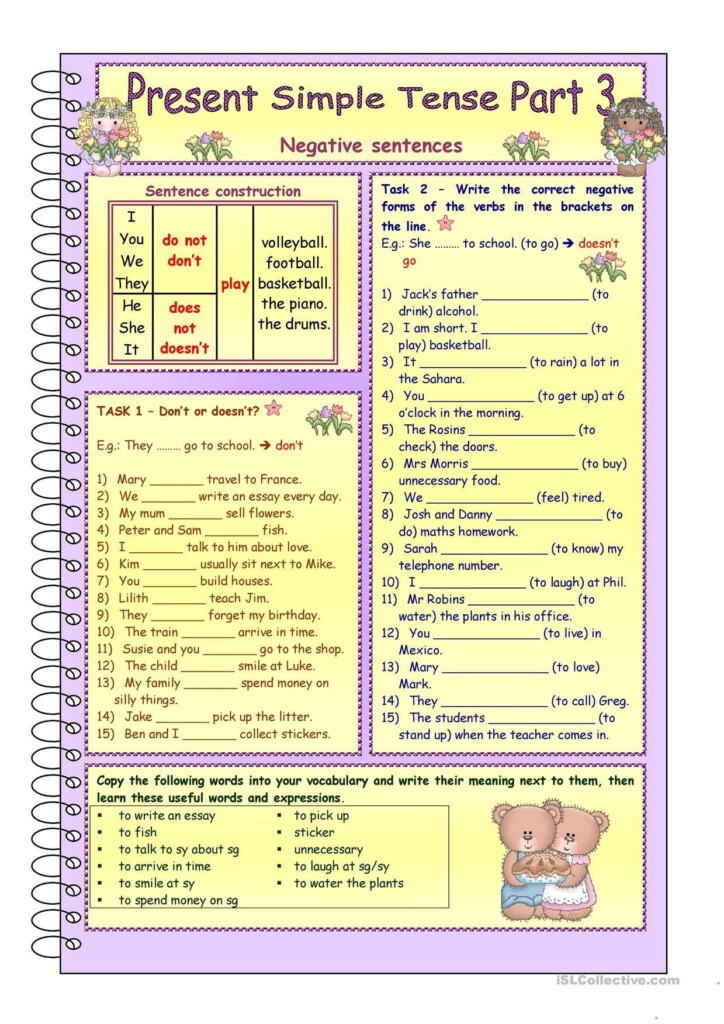 Present Simple Tense Part 3
Negative sentences
Sentence construction
I
You
We
They
do not
don't
He
She
It
does
not
doesn't
play
volleyball.
football.
basketball.
the piano.
the drums.
TASK 1 – Don't or doesn't?
E.g.: They ……… go to school. → don't
1) Mary _______ travel to France.
2) We _______ write an essay every day.
3) My mum _______ sell flowers.
4) Peter and Sam _______ fish.
5) I _______ talk to him about love.
6) Kim _______ usually sit next to Mike.
7) You _______ build houses.
8) Lilith _______ teach Jim.
9) They _______ forget my birthday.
10) The train _______ arrive in time.
11) Susie and you _______ go to the shop.
12) The child _______ smile at Luke.
13) My family _______ spend money on
silly things.
14) Jake _______ pick up the litter.
15) Ben and I _______ collect stickers.
Task 2 – Write the correct negative
forms of the verbs in the brackets on
the line.
E.g.: She ……… to school. (to go) → doesn't
go
1) Jack's father ______________ (to
drink) alcohol.
2) I am short. I ______________ (to
play) basketball.
3) It ______________ (to rain) a lot in
the Sahara.
4) You ______________ (to get up) at 6
o'clock in the morning.
5) The Rosins ______________ (to
check) the doors.
6) Mrs Morris ______________ (to buy)
unnecessary food.
7) We ______________ (feel) tired.
8) Josh and Danny ______________ (to
do) maths homework.
9) Sarah ______________ (to know) my
telephone number.
10) I ______________ (to laugh) at Phil.
11) Mr Robins ______________ (to
water) the plants in his office.
12) You ______________ (to live) in
Mexico.
13) Mary ______________ (to love)
Mark.
14) They ______________ (to call) Greg.
15) The students ______________ (to
stand up) when the teacher comes in.
Copy the following words into your vocabulary and write their meaning next to them, then
learn these useful words and expressions.
▪ to write an essay
▪ to fish
▪ to talk to sy about sg
▪ to arrive in time
▪ to smile at sy
▪ to spend money on sg
▪ to pick up
▪ sticker
▪ unnecessary
▪ to laugh at sg/sy
▪ to water the plants
iSLCollective.com